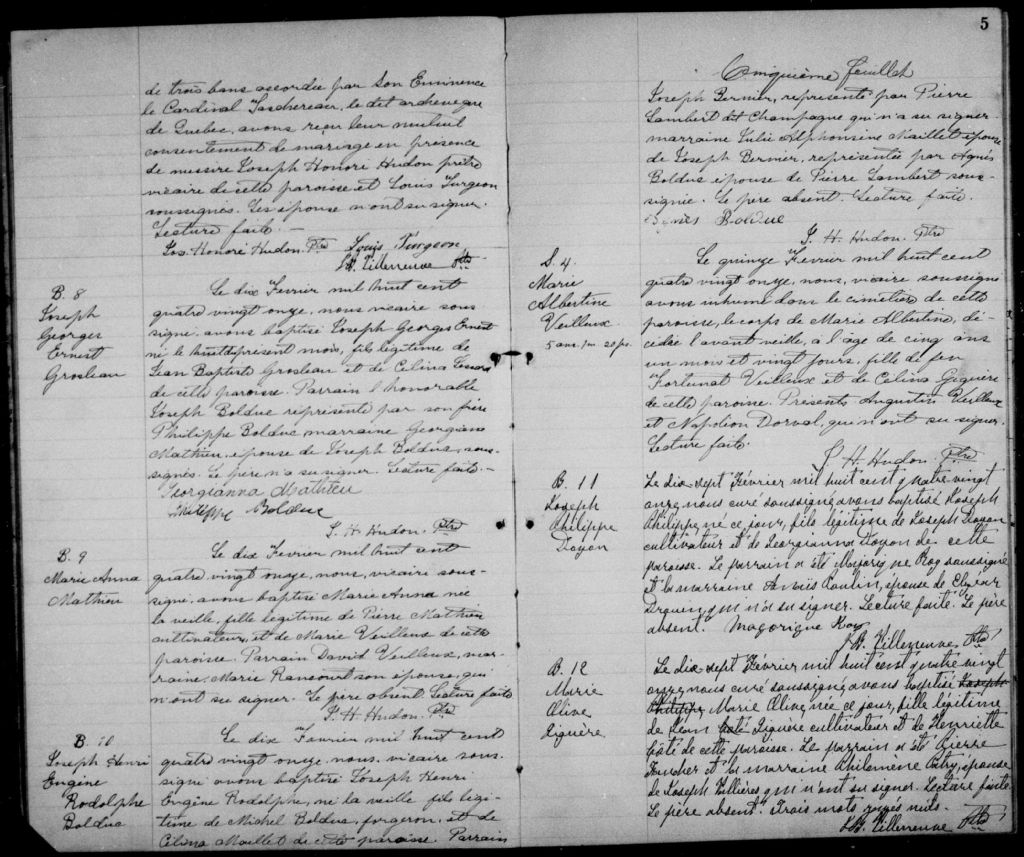 de trois bans accordée par Son Eminence
le Cardinal Taschereau, le dit archeveque
de Quebec, avons reçu leur mutuel
consentement de mariage en presence
de messire Joseph Honoré Hudon prêtre
vicaire de cette paroisse et Louis Turgeon
soussignés. Les epouse n'ont su signer.
Lecture faite. —
Jos. Honoré Hudon. Ptre Louis Turgeon
J.B. Villeneuve Ptre
B. 8
Joseph
Georges
Ernest
Grosleau
Le dix Fevrier mil huit cent
quatre vingt onze, nous vicaire sous
signé, avons baptisé Joseph Georges Ernest
né le huit du présent mois, fils légitime de
Jean Baptiste Grosleau et de Celina
de cette paroisse. Parrain l'honorable
Joseph Bolduc représenté par son frère
Philippe Bolduc marraine Georgiana
Mathieu, epouse de Joseph Bolduc, sous-
signés. Le père n'a su signer. Lecture faite. —
Georgianna Mathieu
Philippe Bolduc
J. H. Hudon. Ptre
B. 9
Marie Anna
Mathieu
Le dix Fevrier mil huit cent
quatre vingt onze, nous, vicaire sous-
signé, avons baptisé Marie Anna née
la veille, fille legitime de Pierre Mathieu
cultivateur, et de Marie Veilleux de cette
paroisse. Parrain David Veilleux, mar-
raine, Marie Rancourt son épouse, qui
n'ont su signer. Le père absent. Lecture faite
J. H. Hudon. Ptre
B. 10
Joseph Henri
Eugène
Rodolphe
Bolduc
Le dix Fevrier mil huit cent
quatre vingt onze, nous, vicaire sous
signé avons baptisé Joseph Henri
Eugène Rodolphe, né la veille fils légi-
time de Michel Bolduc, forgeron, et de
Célina Maillet de cette paroisse. Parrain
5
Cinquième feuillet
Joseph Bernier, représenté par Pierre
Lambert dit Champagne qui n'a su signer
marraine Julie Alphonsine Maillet épouse
de Joseph Bernier, représentée par Agnès
Bolduc épouse de Pierre Lambert sous-
signée. Le père absent. Lecture faite.
Agnès Bolduc
J. H. Hudon. Ptre
S. 4
Marie
Albertine
Veilleux
5 ans. 1m 20 js.
Le quinze Fevrier mil huit cent
quatre vingt onze, nous, vicaire soussigné
avons inhumé dans le cimetière de cette
paroisse, le corps de Marie Albertine, dé-
cédée l'avant veille, à l'âge de cinq ans
un mois et vingt jours, fille de feu
Fortunat Veilleux et de Celina Giguère
de cette paroisse. Présents Augustin Veilleux
et Napoléon Dorval, qui n'ont su signer.
Lecture faite.
J. H. Hudon. Ptre
B. 11
Joseph
Philippe
Doyon
Le dix-sept Février mil huit cent quatre vingt
onze, nous curé soussigné avons baptisé Joseph
Philippe, né ce jour, fils légitime de Joseph Doyon
cultivateur et de Georgianna Doyon de cette
paroisse. Le parrain a été Majorique Roy soussigné
et la marraine Poulin, épouse de Elzéar
qui n'a su signer. Lecture faite. Le père
absent. Magorique Roy
J.B. Villeneuve Ptre
B. 12
Marie
Olive
Giguère
Le dix-sept Février mil huit cent quatre vingt
onze, nous curé soussigné avons baptisé Joseph
Philippe Marie Olive, née ce jour, fille légitime
de Jean Giguère cultivateur et de Henriette
de cette paroisse. Le parrain a été Pierre
Faucher et la marraine Philomène épouse
de Joseph qui n'ont su signer. Lecture faite.
Le père absent. Trois mots rayés nuls.
J.B. Villeneuve Ptre